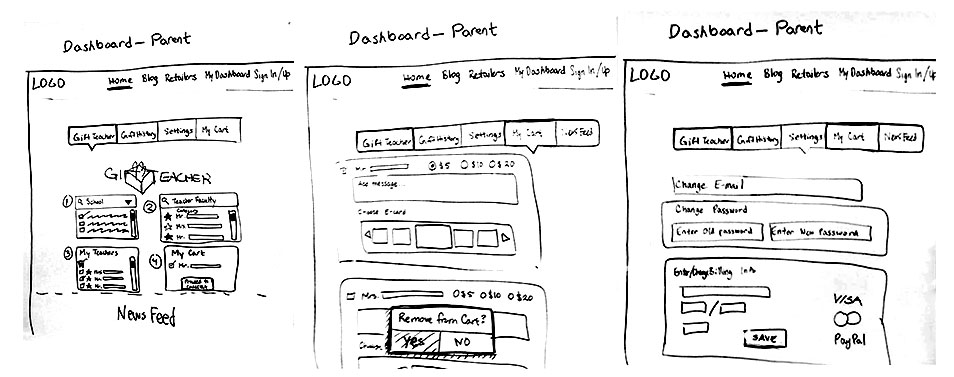 Dashboard - Parent
LOGO
Home Blog Retailers My Dashboard Sign In/Up
Gift Teacher Gift History Settings My Cart
GIFT TEACHER
1 School
2 Teacher Faculty
Category
Mr.
Mrs.
Mr.
3 My Teachers
Mrs.
Mr.
Mr.
4 My Cart
Mr.
Proceed to Checkout
News Feed
Dashboard - Parent
LOGO
Home Blog Retailers My Dashboard Sign In/Up
Gift Teacher Gift History Settings My Cart News Feed
Mr. $5 $10 $20
Add message...
Choose E-card
Mrs. $5 $10 $20
Remove from Cart?
Choose
Yes NO
Dashboard - Parent
LOGO
Home Blog Retailers My Dashboard Sign In/Up
Gift Teacher Gift History Settings My Cart News Feed
Change E-mail
Change Password
Enter Old password Enter New Password
Enter/Change Billing Info
VISA
SAVE
PayPal